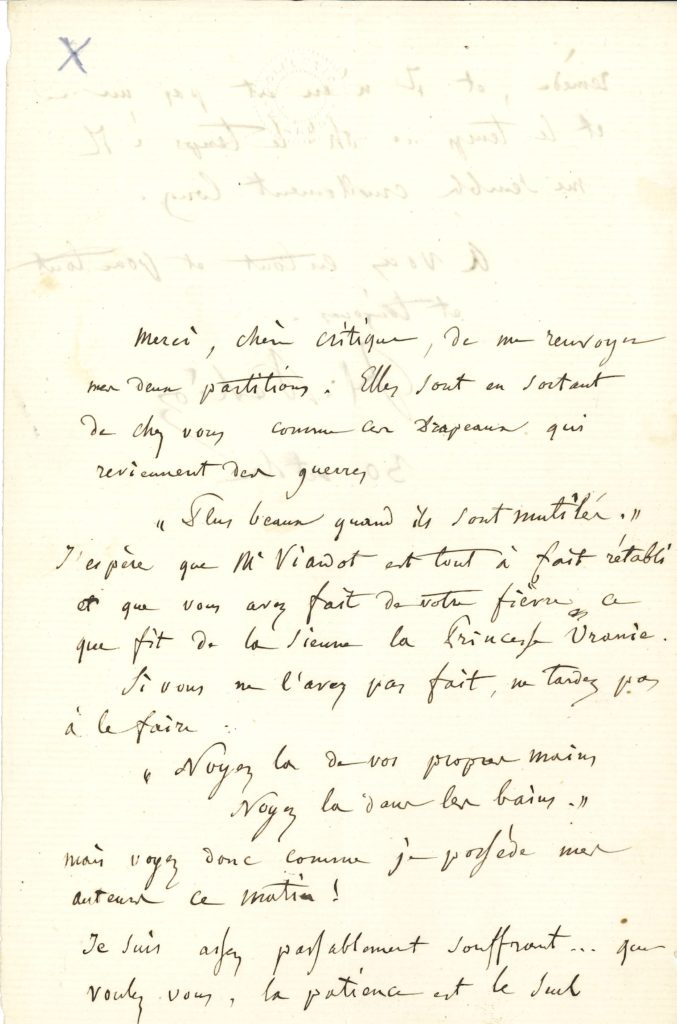 X
Merci, chère critique, de me renvoyer
mes deux partitions. Elles sont en sortant
de chez vous comme ces Drapeaux qui
reviennent des guerres
"Plus beaux quand ils sont mutilés."
J'espère que Mr Viardot est tout à fait rétabli
et que vous avez fait de votre fièvre ce
que fit de la sienne la Princesse Uranie.
Si vous ne l'avez pas fait, ne tardez pas
à le faire.
"Noyez la de vos propres mains
Noyez la dans les bains."
mais voyez donc comme je possède mes
auteurs ce matin!
Je suis assez passablement souffrant... que
voulez vous, la patience est le seul